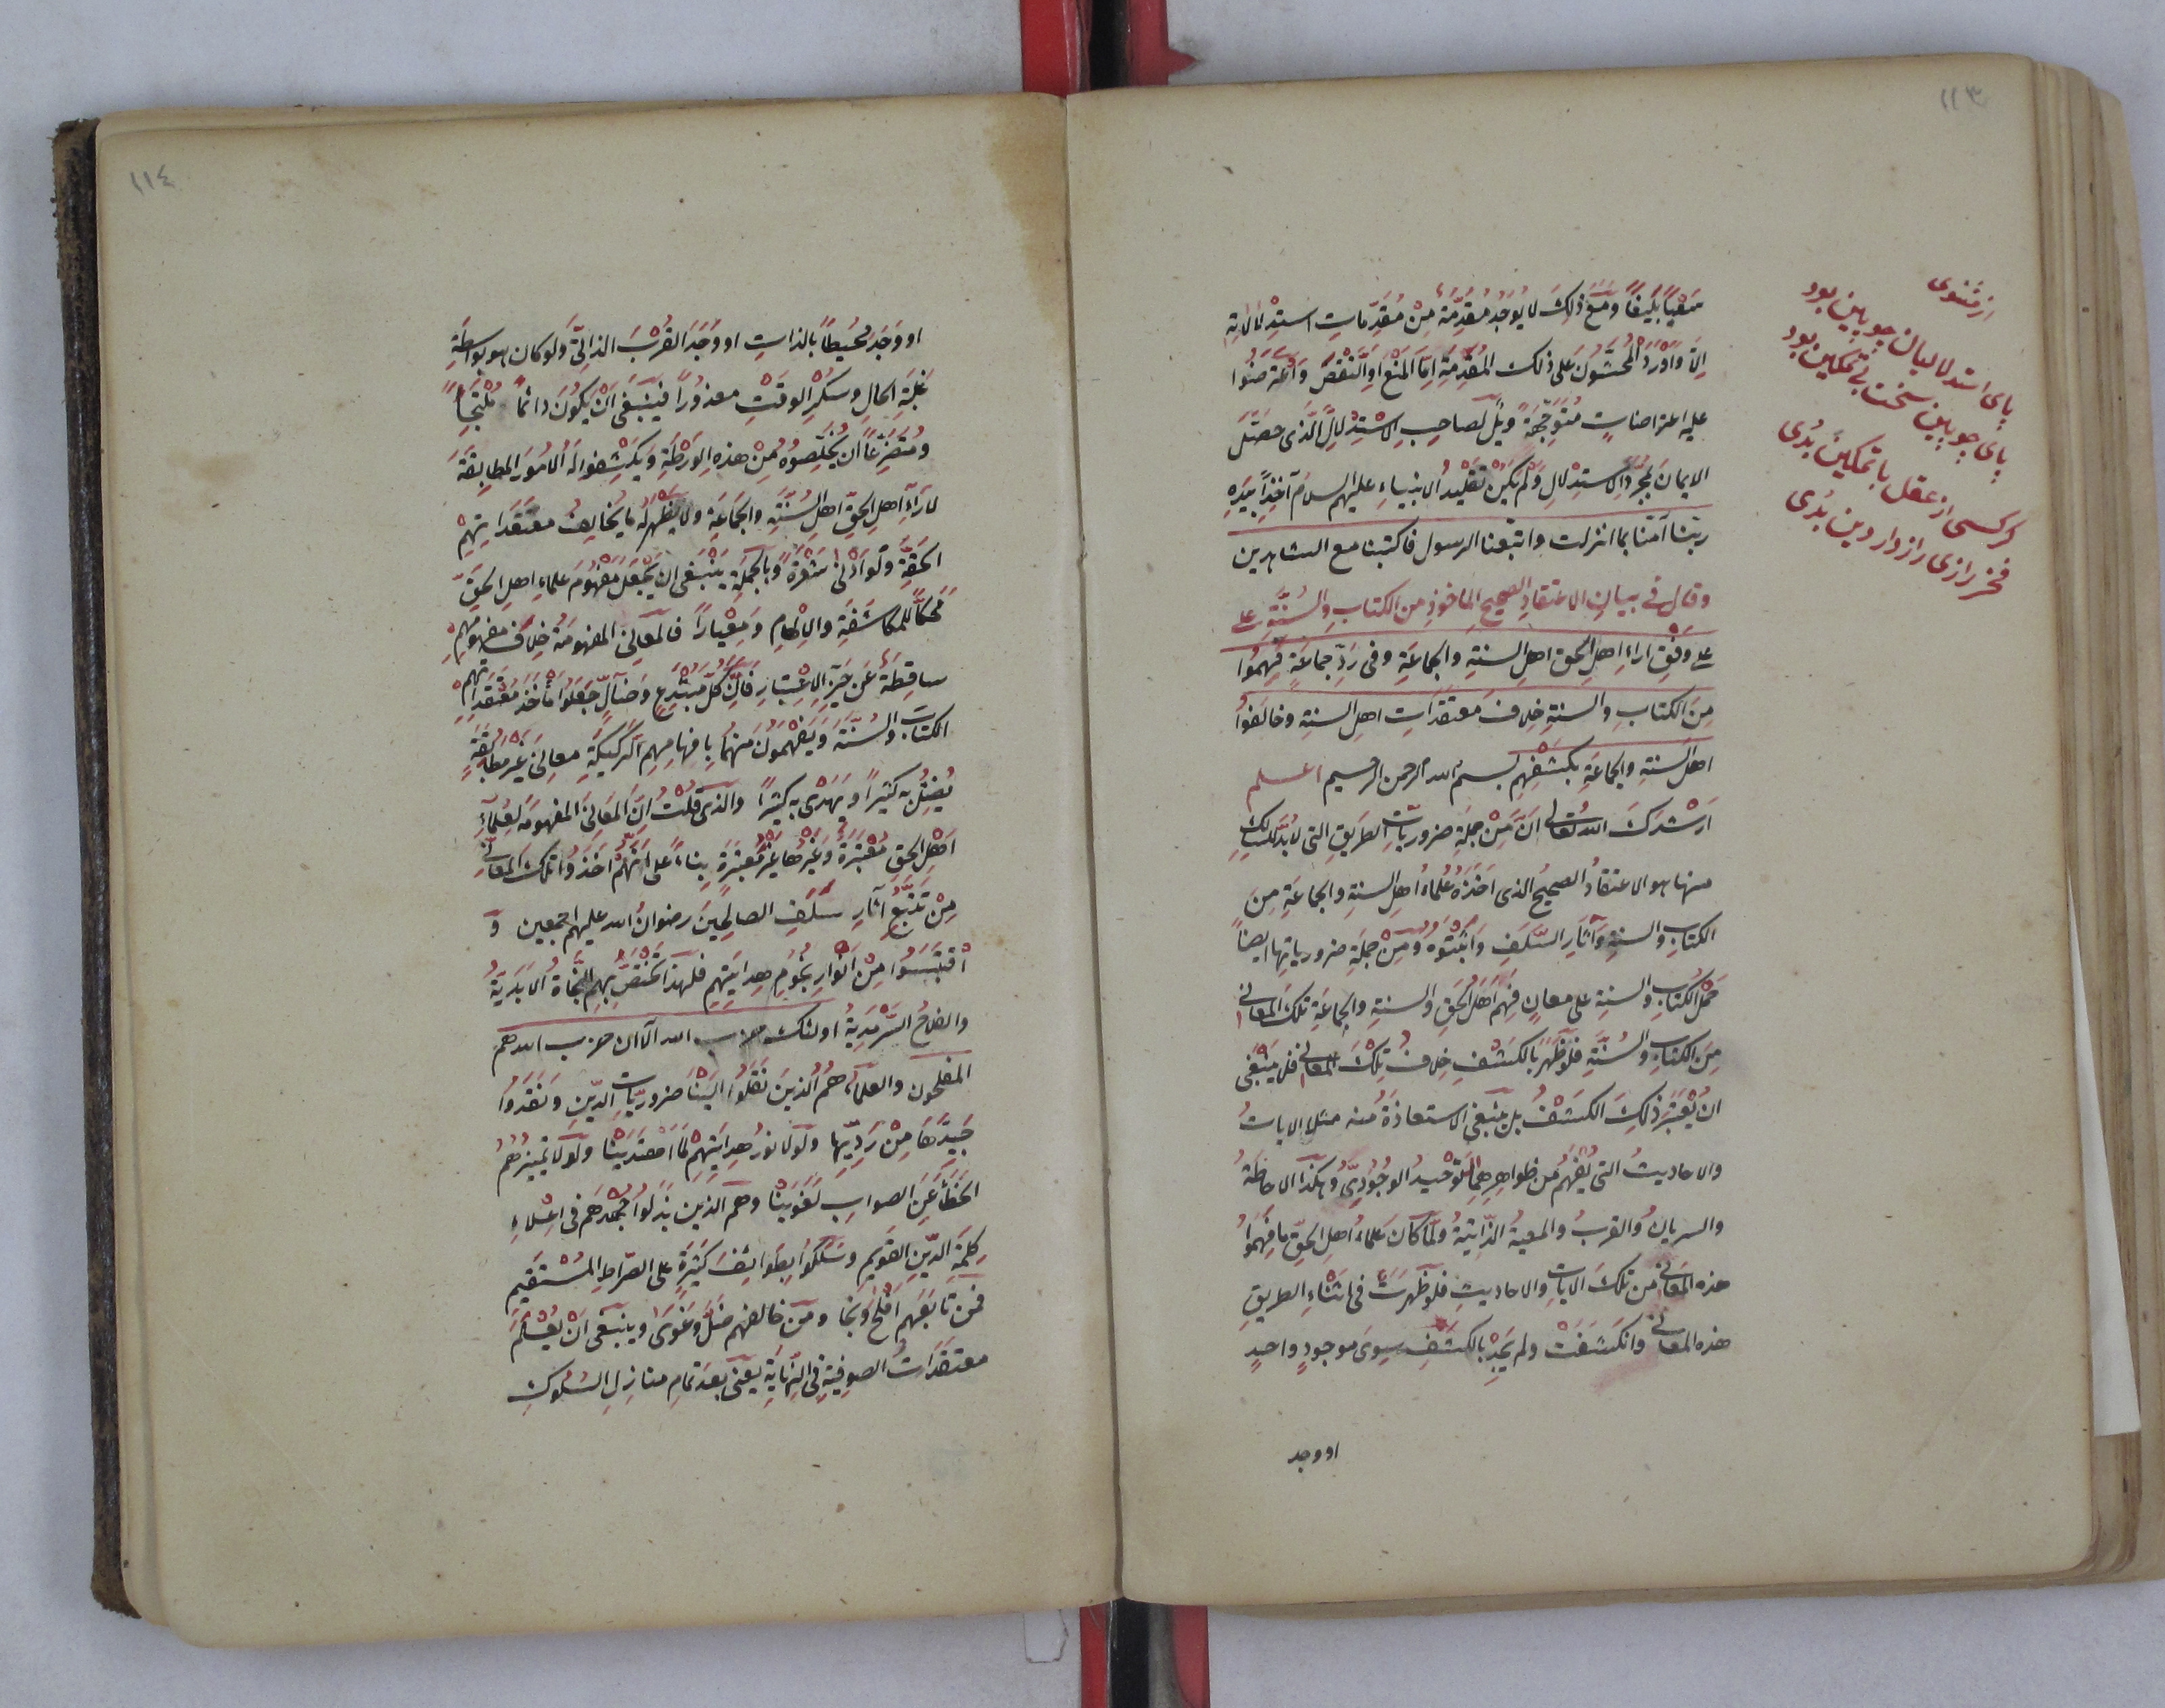 ١١٣
از مثنوی
پای استدلالیان چوبین بود
پای چوبین سخت بی تمکین بود
گر کسی از عقل با تمکین بدی
فخر رازی راز دار دین بدی
سعيا بليغا ومع ذلك لا يوجد مقدمة من مقدمات استدلالاته
الا واورد المحشون على ذلك المقدمة اما المنع او النقض واعترضوا
عليه اعتراضات متوجهة ويل لصاحب الاستدلال الذى حصل
الايمان بمجرد الاستدلال ولم يكن تقليد الانبياء عليهم السلام آخذا بيده
ربنا آمنا بما انزلت واتبعنا الرسول فاكتبنا مع الشاهدين
وقال فى بيان الاعتقاد الصحيح الماخوذ من الكتاب والسنة على
على وفق اراء اهل الحق اهل السنة والجماعة وفى رد جماعة فهموا
من الكتاب والسنة خلاف معتقدات اهل السنة وخالفوا
اهل السنة والجماعة بكشفهم بسم الله الرحمن الرحيم اعلم
ارشدك الله تعالى ان من جملة ضروريات الطريق التى لا بد للسالك
منها هو الاعتقاد الصحيح الذى اخذه علماء اهل السنة والجماعة من
الكتاب والسنة وآثار السلف واثبتوه ومن جملة ضرورياتها ايضا
حمل الكتاب والسنة على معان فهم اهل الحق والسنة والجماعة تلك المعانى
من الكتاب والسنة فلو ظهر بالكشف خلاف تلك المعانى فلا ينبغى
ان يعتبر ذلك الكشف بل ينبغى الاستعاذة منه مثلا الايات
والاحاديث التى يفهم من ظواهرهما التوحيد الوجودى وهكذا الاحاطة
والسريان والقرب والمعية الذاتية ولما كان علماء اهل الحق ما فهموا
هذه المعانى من تلك الايات والاحاديث فلو ظهرت فى اثناء الطريق
هذه المعانى وانكشفت ولم يجد بالكشف سوى موجود واحد
او وجد
١١٤
او وجد محيطا بالذات او وجد القرب الذاتى ولو كان هو بواسطة
غلبة الحال وسكر الوقت معذورا فينبغى ان يكون دائما ملتجا
ومتضرعا ان يخلصوه من هذه الورطة ويكشفوا له الامور المطابقة
لآراء اهل الحق اهل السنة والجماعة ولا يظهر له ما يخالف معتقداتهم
الحقة ولو ادنى شعرة وبالجملة ينبغى ان يجعل مفهوم علماء اهل الحق
محكا للمكاشفة والالهام ومعيارا فالمعانى المفهومة خلاف مفهومهم
ساقطة عن حيز الاعتبار فان كل مبتدع وضال جعلوا مأخذ معتقداتهم
الكتاب والسنة ويفهمون منهما بافهامهم الركيكة معانى غير مطابقة
يضل به كثيرا ويهدى به كثيرا والذى قلت ان المعانى المفهومة لعلماء
اهل الحق معتبرة وغيرها غير معتبرة بناء على انهم اخذوا تلك المعانى
من تتبع آثار سلف الصالحين رضوان الله عليهم اجمعين و
اقتبسوا من انوار نجوم هدايتهم فلهذا تختص بهم النجاة الابدية
والفلاح السرمدية اولئك حزب الله الا ان حزب الله هم
المفلحون والعلماء هم الذين نقلوا الينا ضروريات الدين ونقدوا
جيدها من رديها ولولا نور هدايتهم لما اهتدينا ولولا تميزهم
الخطأ عن الصواب لغوينا وهم الذين بذلوا جهدهم فى اعلاء
كلمة الدين القويم وسلكوا بطوائف كثيرة على الصراط المستقيم
فمن تابعهم افلح ونجا ومن خالفهم ضل وغوى وينبغى ان يعلم
معتقدات الصوفية فى النهاية يعنى بعد تمام منازل السلوك